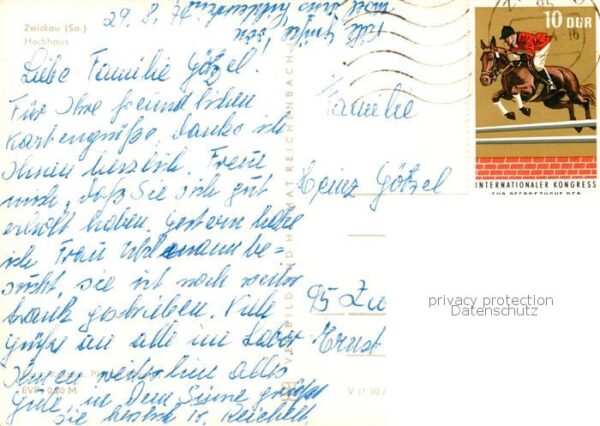 Zwickau (Sa.)
Hochhaus
29. 8. 74
Liebe Familie Götzel.
Für Ihre freundlichen
Kartengrüße danke ich
Ihnen herzlich. Freue
mich, daß Sie sich gut
erholt haben. Gestern habe
ich Frau Uhlemann be-
sucht, sie ist noch weiter
krank geschrieben. Viele
Grüße an alle im Labor
Ihnen weiterhin alles
Gute, in dem Sinne grüßt
Sie herzlich
EVP: 0,20 M
VERLAG BILD UND HEIMAT REICHENBACH
V 11 50
Familie
Heinz Götzel
95 Zw
Ernst
10 DDR
INTERNATIONALER KONGRESS
FÜR PFERDEZUCHT DER
privacy protection
Datenschutz